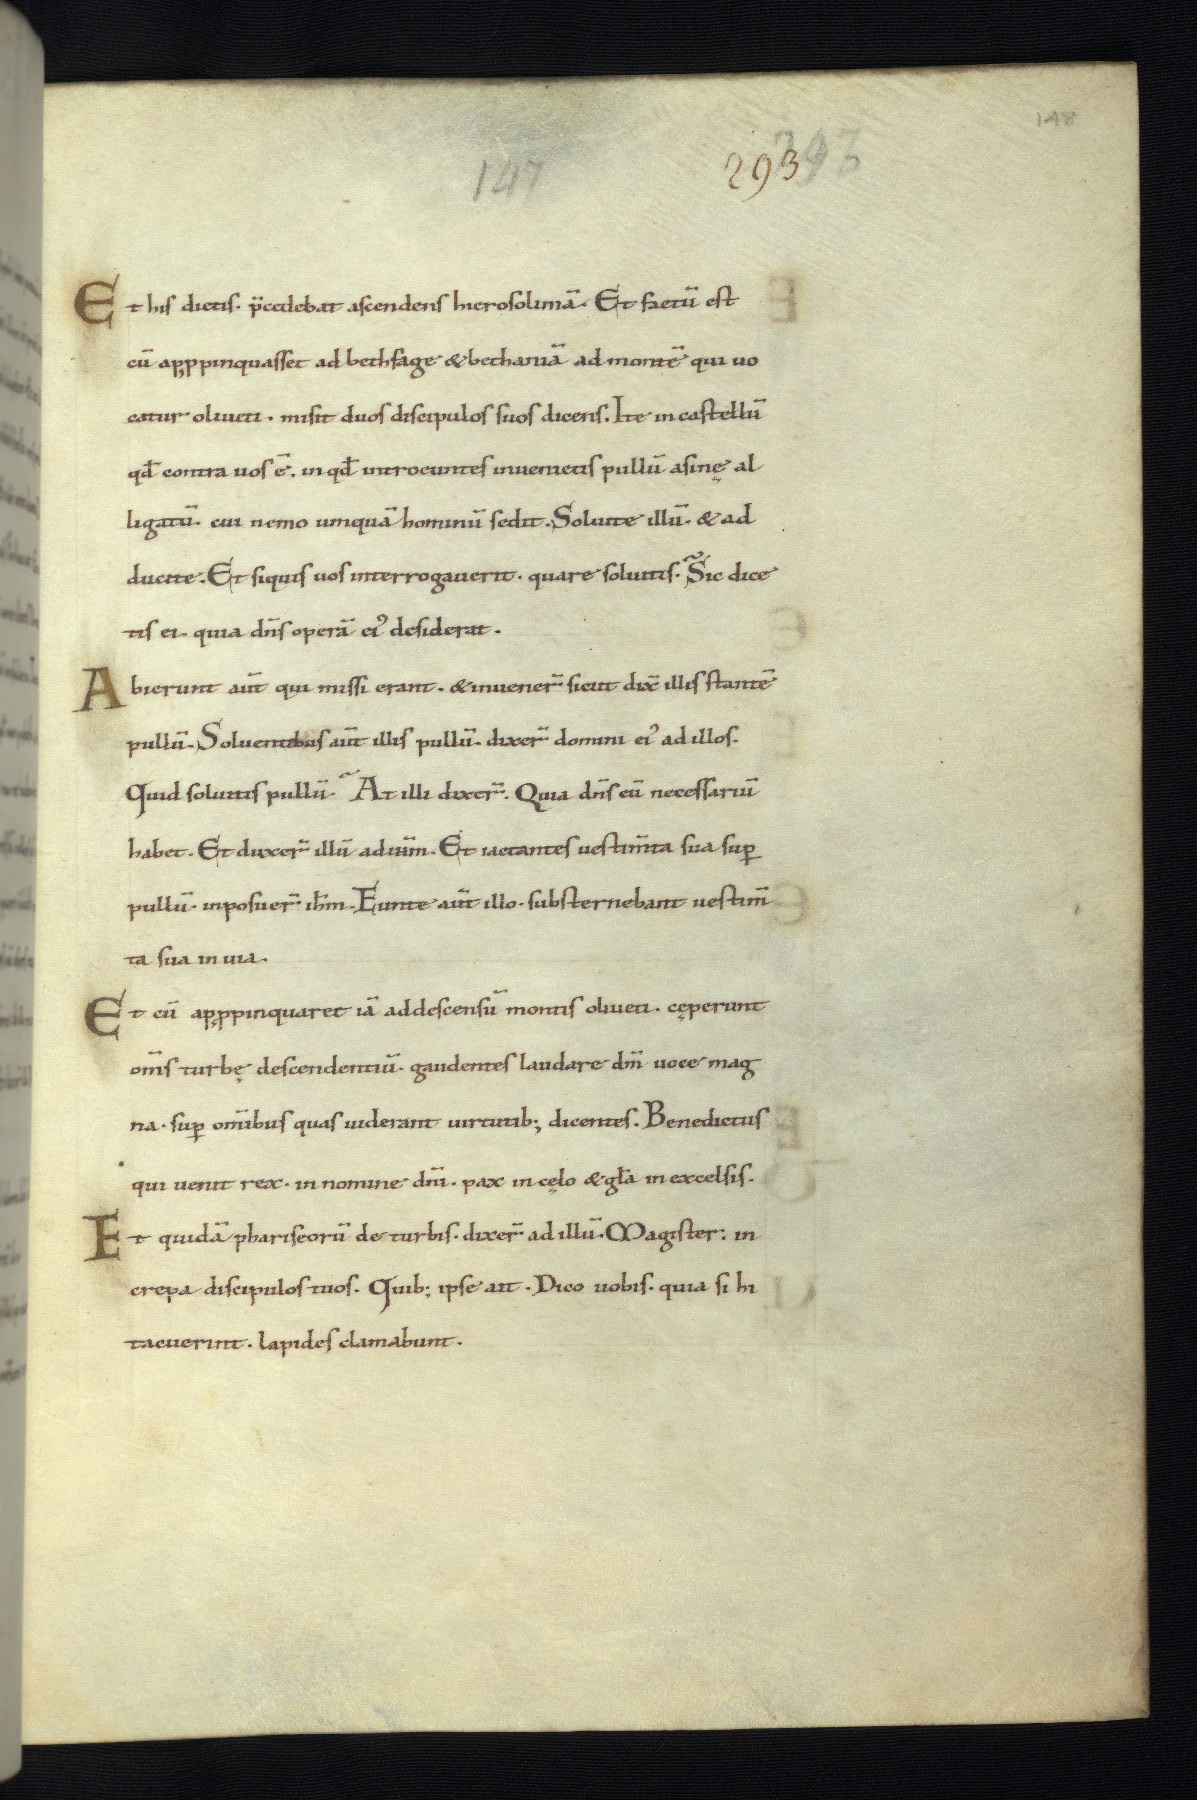 148
147 293 293
Et his dictis. p̈cedebat ascendens hierosolimā. Et factū est
cū aꝓpinquasset ad bethfage & bethaniā ad montē qui uo
catur oliueti. misit duos discipulos suos dicens. Ite in castellū
qđ contra uos ē. in qđ introeuntes inuenietis pullū asinę al
ligatū. cui nemo umquā hominū sedit. Soluite illū. & ad
ducite. Et siquis uos interrogauerit. quare soluitis.~ Sic dice
tis ei. quia dn̄s operā ei᾽ desiderat.
Abierunt aūt qui missi erant. & inuener̄ sicut dix̄ illis stantē
pullū. Soluentibus aūt illis pullū. dixer̄ domini ei᾽ ad illos.
Quid soluitis pullū.~ At illi dixer̄. Quia dn̄s eū necessariū
habet. Et duxer̄ illū ad ih̄m. Et iactantes uestim̄ta sua suꝑ
pullū. inposuer̄ ih̄m. Eunte aūt illo. substernebant uestim̄
ta sua in uia.
Et cū aꝓpinquaret iā ad descensū montis oliueti. cęperunt
om̄s turbę descendentiū. gaudentes laudare dm̄ uoce mag
na. suꝑ om̄ibus quas uiderant uirtutib; dicentes. Benedictus
qui uenit rex. in nomine dn̄i. pax in cęlo & gl̄a in excelsis.
Et quidā phariseorū de turbis. dixer̄ ad illū. Magister: in
crepa discipulos tuos. Quib; ipse ait. Dico uobis. quia si hi
tacuerint. lapides clamabunt.